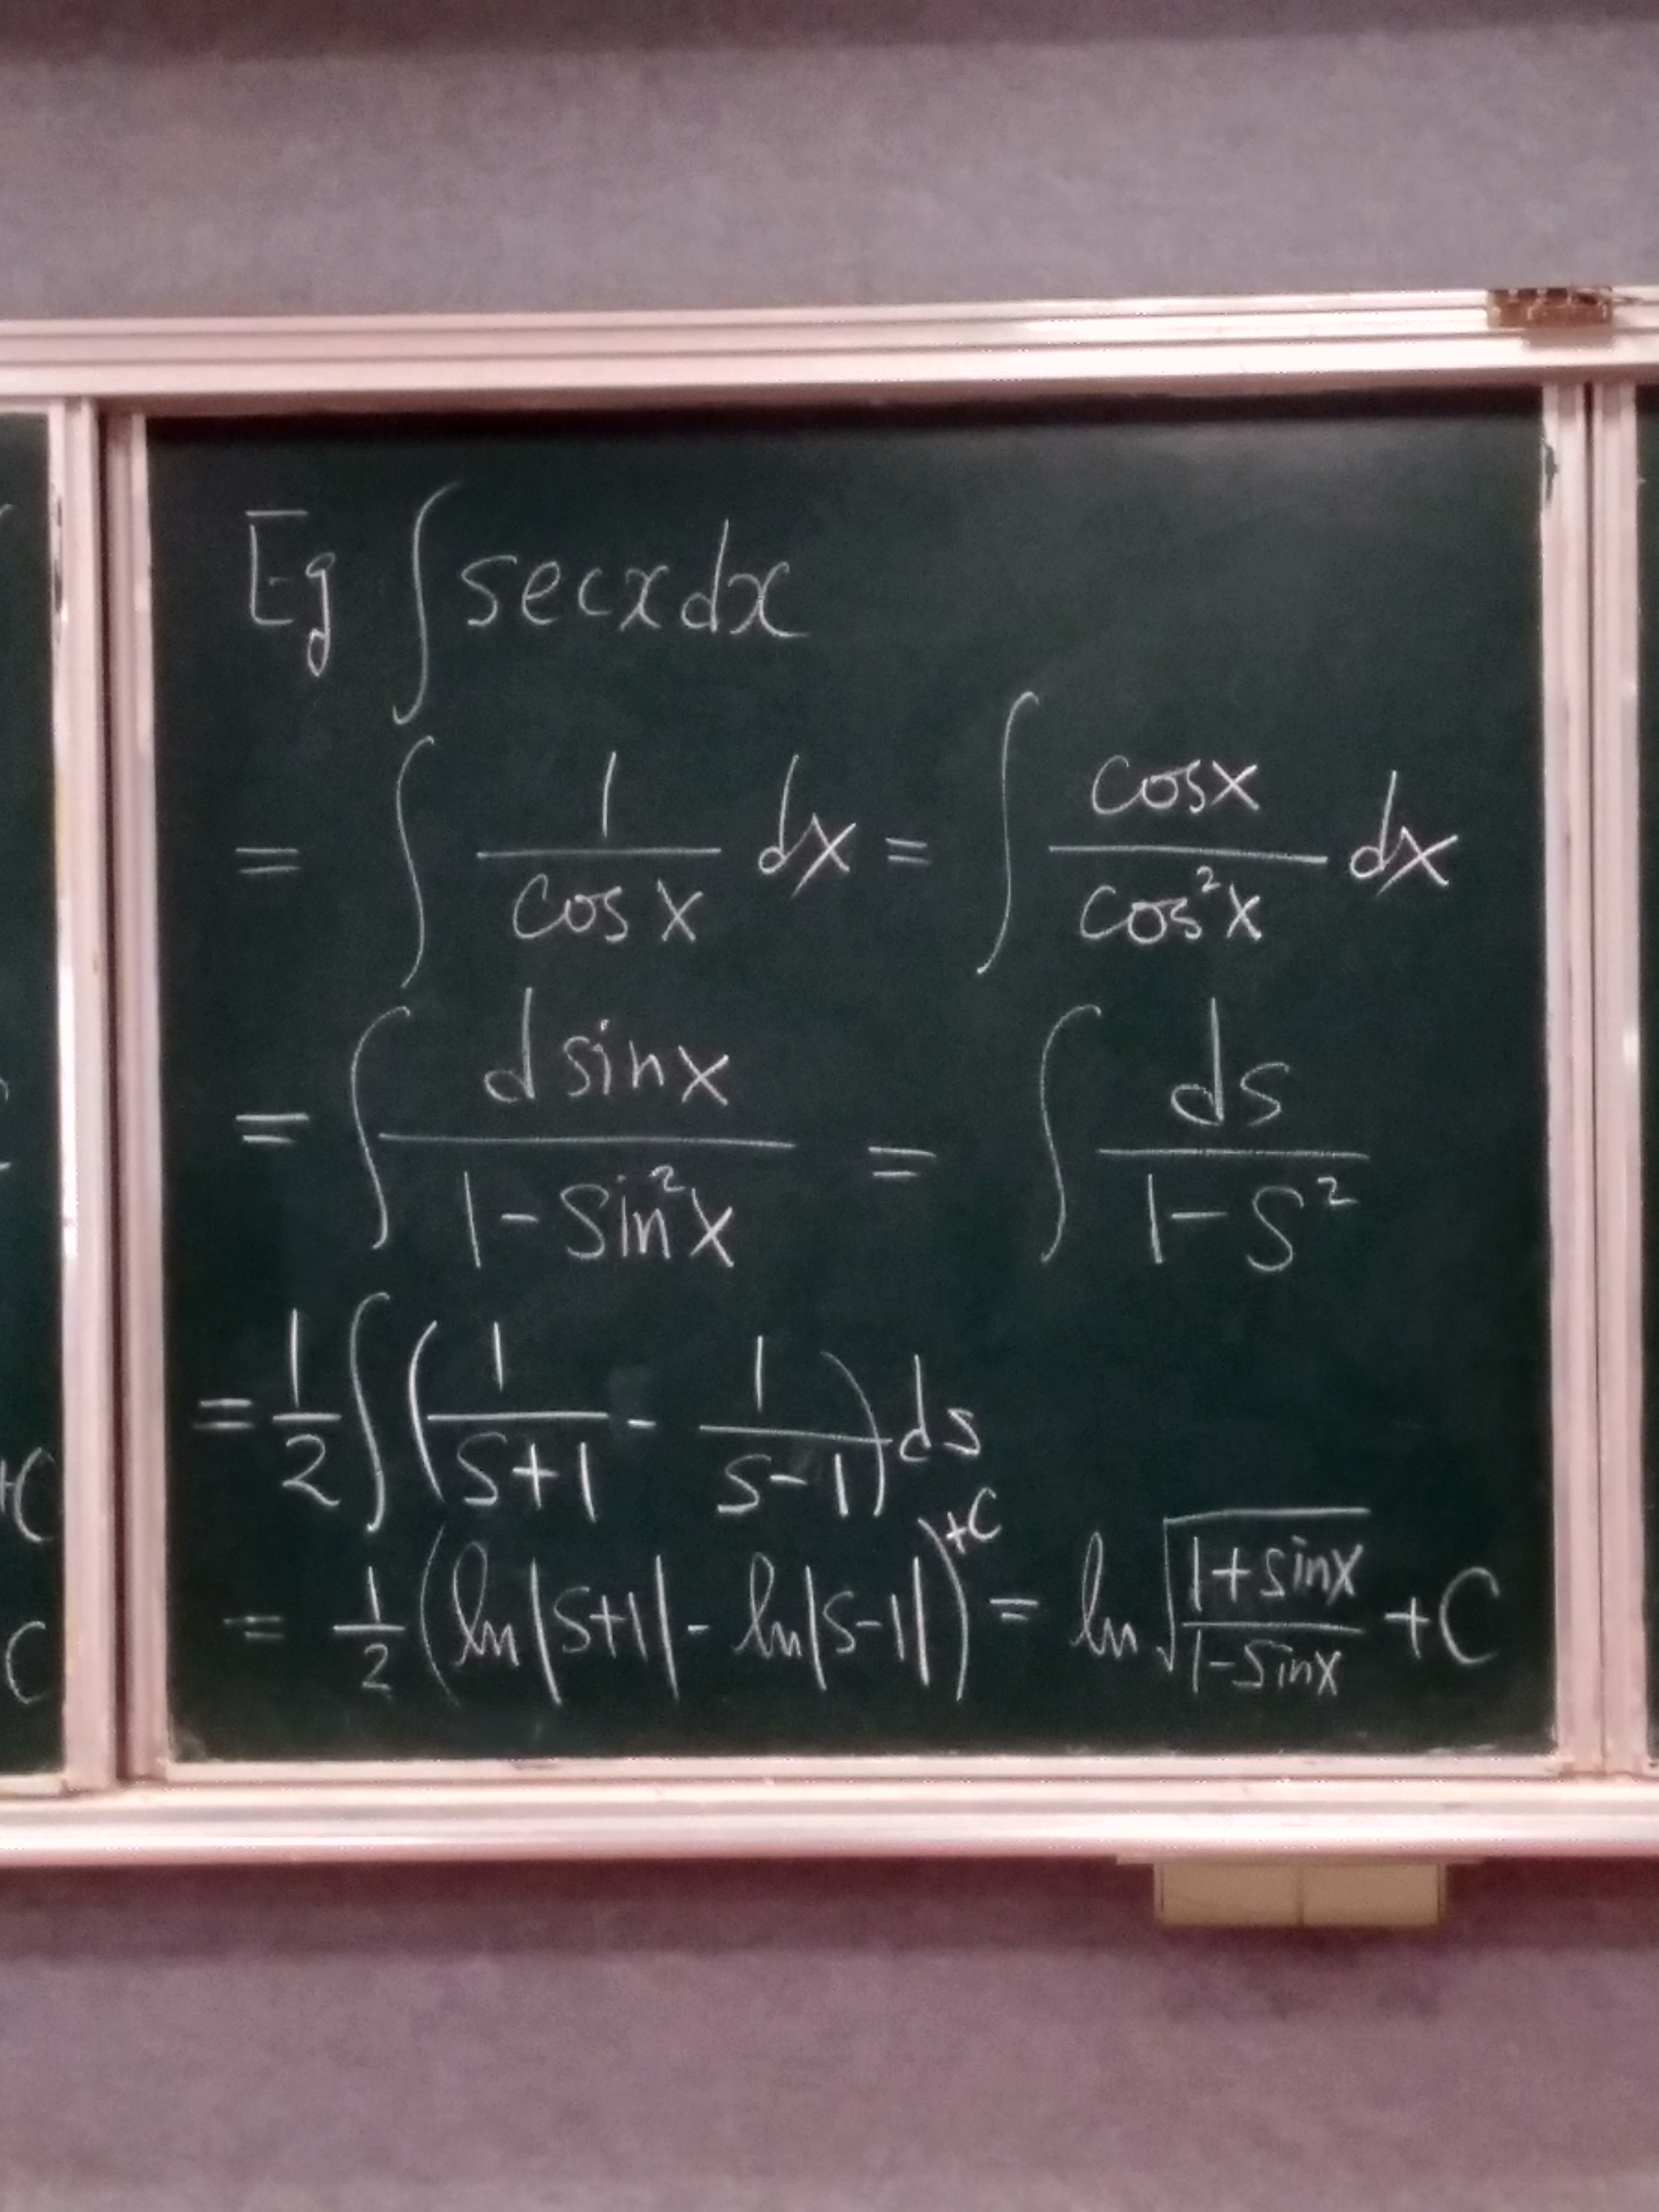 Eg ∫ secx dx
= ∫ 1/cos x dx = ∫ cosx/cos²x dx
= ∫ d sinx/(1-sin²x) = ∫ ds/(1-s²)
= 1/2 ∫ (1/(s+1) - 1/(s-1)) ds
= 1/2 (ln|s+1| - ln|s-1|)+C = ln √((1+sinx)/(1-sinx)) + C
+C
C